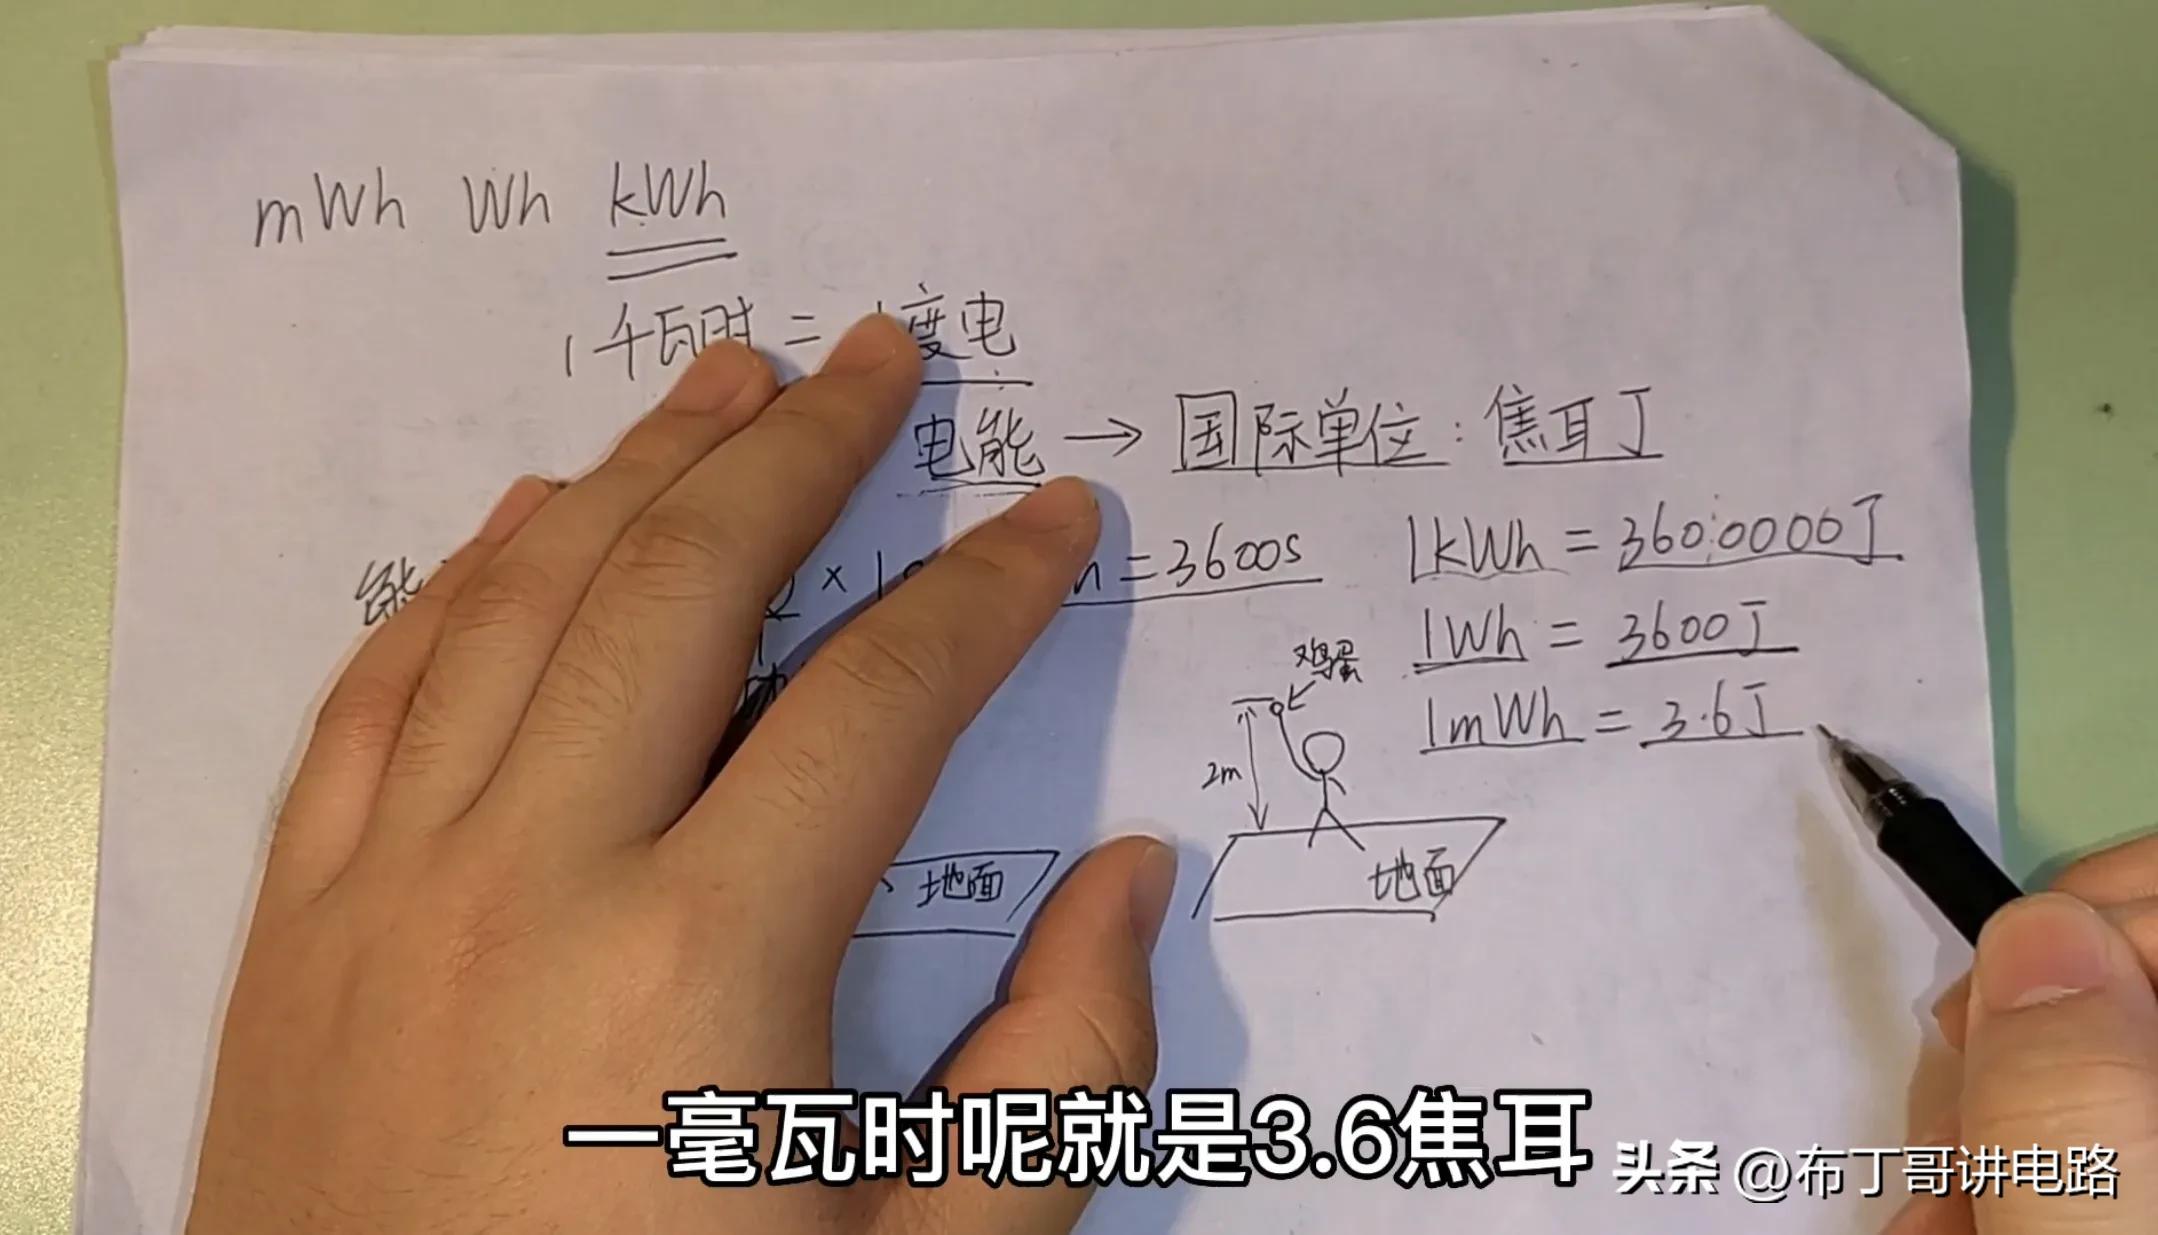 mWh Wh kWh
1千瓦时 = 1度电
电能 → 国际单位:焦耳 J
能
× 1
h = 3600s
1kWh = 3600000J
1Wh = 3600J
1mWh = 3.6J
鸡蛋
2m
地面
地面
一毫瓦时呢就是3.6焦耳
头条 @布丁哥讲电路